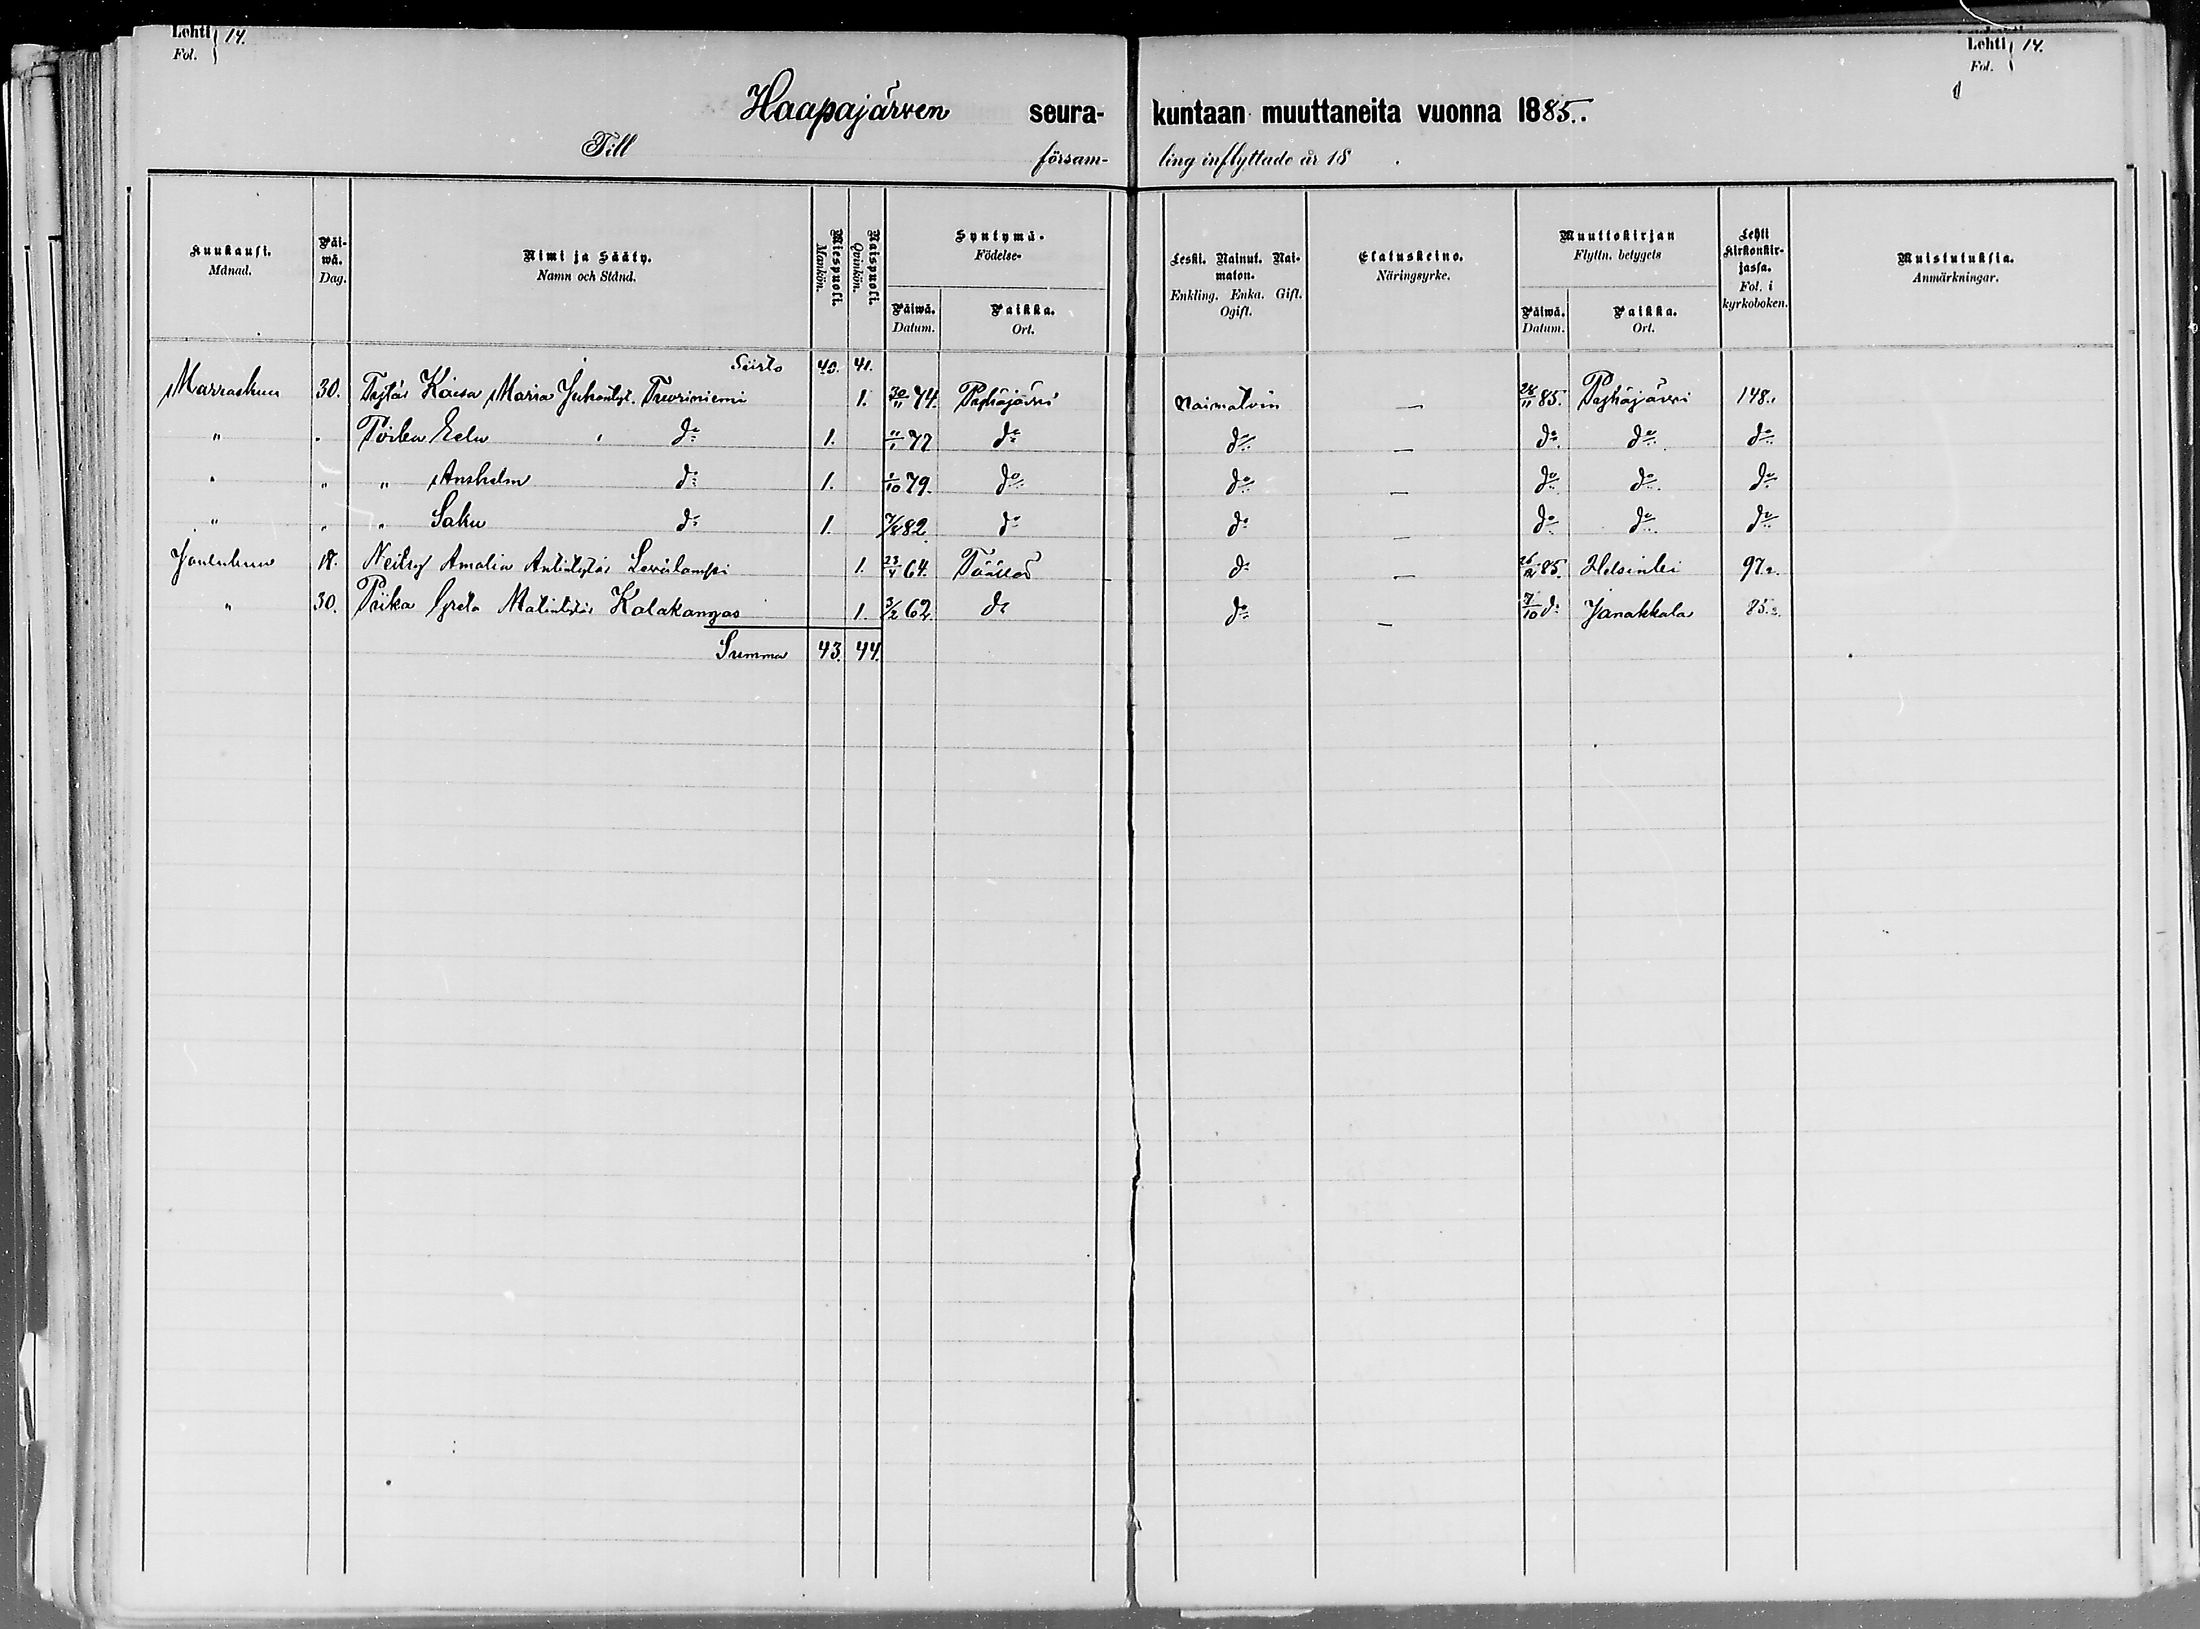 Lehti 14.
Fol.
Lehti 14.
Fol.
Haapajärven seura- kuntaan muuttaneita vuonna 1885.
Till försam- ling inflyttade år 18 .
Kuukausi. Månad.
Päi-wä. Dag.
Nimi ja Sääty. Namn och Stånd.
Miespuoli. Mankön.
Naispuoli. Qvinkön.
Syntymä- Födelse-
Päiwä. Datum.
Paikka. Ort.
Leski. Nainut. Nai-maton. Enkling. Enka. Gift. Ogift.
Elatuskeino. Näringsyrke.
Muuttokirjan Flyttn. betygets
Päiwä. Datum.
Paikka. Ort.
Lehti Kirkonkir-jassa. Fol. i kyrkoboken.
Muistutuksia. Anmärkningar.
Siirto 40. 41.
Marraskuu 30. Tytär Kaisa Maria Juhontyt. 1. 30/11 74. Pyhäjärvi Naimatoin — 28/11 85. Pyhäjärvi 148.
" " Poika Eelu do 1. 11/1 77 do do — do do do
" " " Anshelm do 1. 1/10 79. do do — do do do
" " " Saku do 1. 7/8 82. do do — do do do
Joulukuu 18. Neitsy Amalia Antintytär Levälampi 1. 23/4 64. Täällä do — 85. Helsinki 97.
" 30. Piika Greta Matintytär Kalakangas 1. 3/2 62. do do — 7/10 do Janakkala 85.
Summa 43. 44.